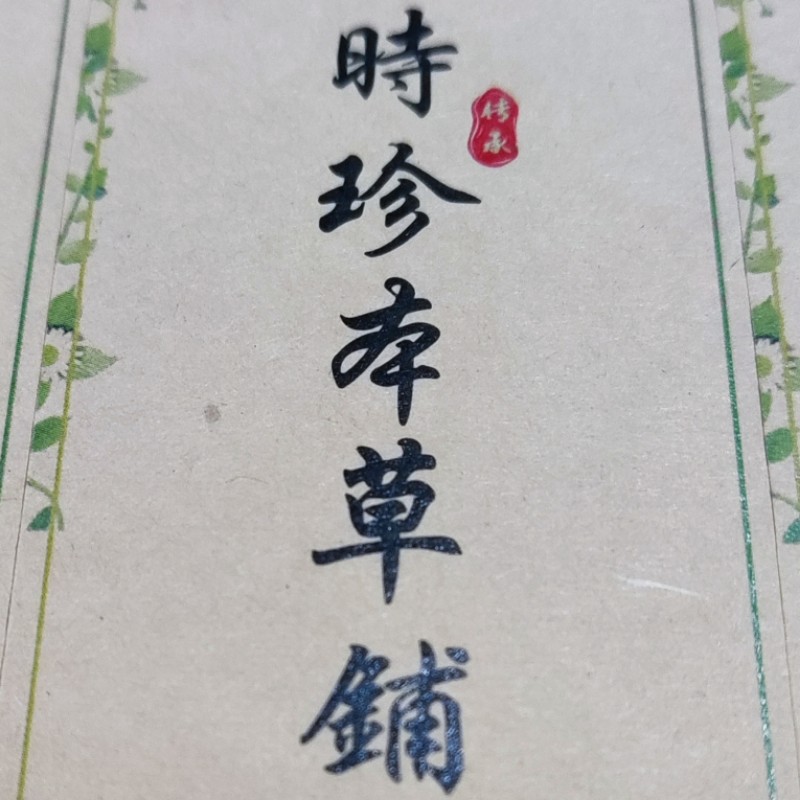 時珍本草鋪
传承